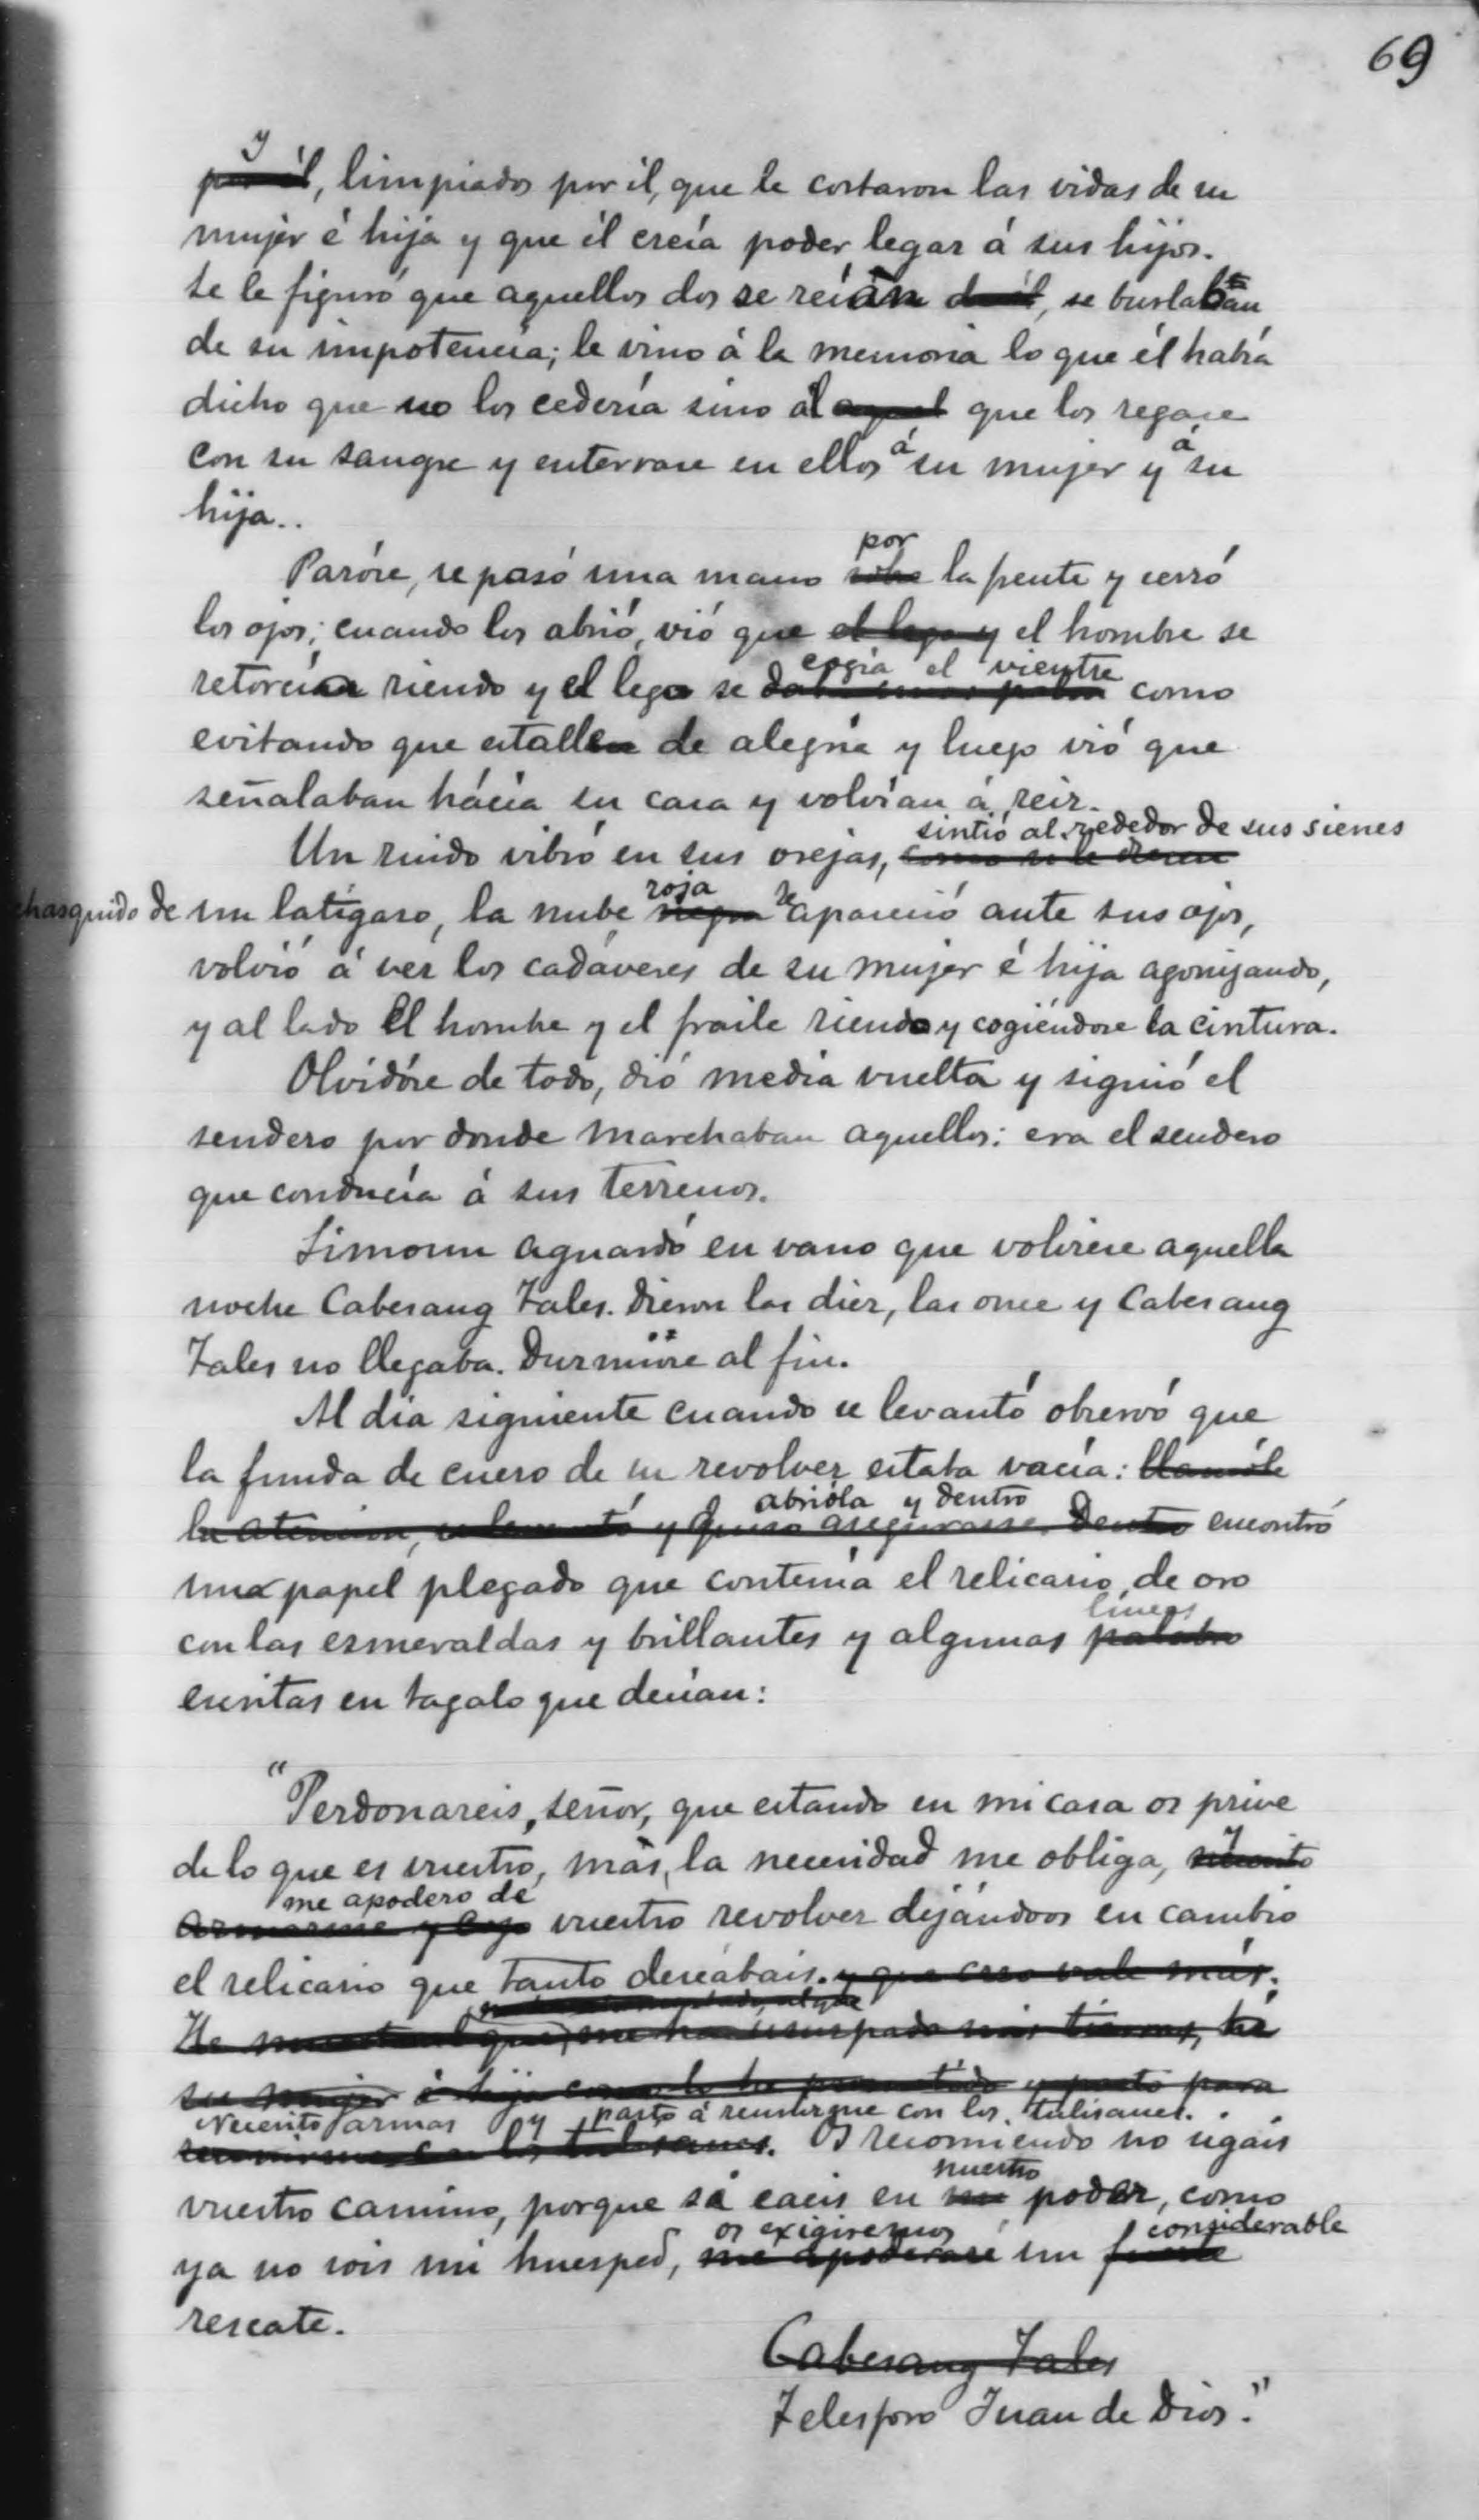 69
y
por él, limpiados por él, que le costaron las vidas de su
mujer é hija y que él creía poder legar á sus hijos.
Se le figuró que aquellos dos se reían de él, se burlaban
de su impotencia; le vino á la memoria lo que él había
dicho que no los cedería sino al aquel que los regase
con su sangre y enterrase en ellos á su mujer y á su
hija..
Paróse, se pasó una mano sobre por la frente y cerró
los ojos; cuando los abrió, vió que el lego y el hombre se
cogía el vientre
retorcía riendo y el lego se daba como
evitando que estalle de alegría y luego vió que
señalaban hácia su casa y volvían á reir.
sintió al rededor de sus sienes
Un ruido vibró en sus orejas, como si le diesen
chasquido de un latigazo, la nube negra roja reapareció ante sus ojos,
volvió á ver los cadáveres de su mujer é hija agonizando,
y al lado el hombre y el fraile riendo y cogiéndose la cintura.
Olvidóse de todo, dió media vuelta y siguió el
sendero por donde marchaban aquellos: era el sendero
que conducía á sus terrenos.
Simoun aguardó en vano que volviese aquella
noche Cabesang Tales. Dieron las diez, las once y Cabesang
Tales no llegaba. Durmióse al fin.
Al día siguiente cuando se levantó observó que
la funda de cuero de su revolver estaba vacía: llamóle
abrióla y dentro
la atencion, se levantó y quiso asegurarse. Dentro encontró
un papel plegado que contenía el relicario de oro
con las esmeraldas y brillantes y algunas palabras líneas
escritas en tagalo que decían:
"Perdonareis, señor, que estando en mi casa os prive
de lo que es vuestro, más, la necesidad me obliga, necesito y
me apodero de
armarme y cojo vuestro revolver dejándoos en cambio
el relicario que tanto deseábais. y que creo vale más.
He que me han usurpado mis tierras, hé
su mujer é hija como lo he prometido y parto para
Necesito armas y parto á reunirme con los tulisanes.
reunirme con los tulisanes. Os recomiendo no sigais
vuestro camino, porque si caeis en mi nuestro poder, como
os exigiremos considerable
ya no sois mi huesped, me apoderaré un fuerte
rescate.
Cabesang Tales
Telesforo Juan de Dios."